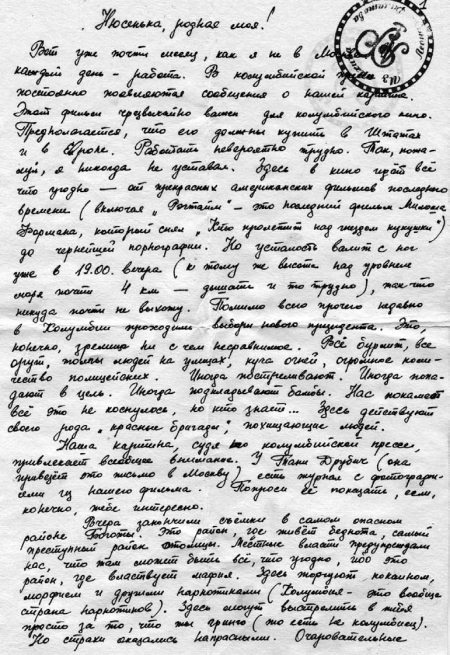 Нюсенька, родная моя!
Вот уже почти месяц, как я не в
каждый день - работа. В колумбийской
постоянно появляются сообщения о нашей картине.
Этот фильм чрезвычайно важен для колумбийского кино.
Предполагается, что его должны купить в Штатах
и в Европе. Работать невероятно трудно. Так, пожа-
луй, я никогда не уставал. Здесь в кино идёт всё
что угодно — от прекрасных американских фильмов последнего
времени (включая „Рэгтайм" - это последний фильм Милоша
Формана, который снял „Кто пролетит над гнездом кукушки")
до чернейшей порнографии. Но усталость валит с ног
уже в 19.00 вечера (к тому же высота над уровнем
моря почти 4 км — дышать и то трудно), так что
никуда почти не выхожу. Помимо всего прочего недавно
в Колумбии проходили выборы нового президента. Это,
конечно, зрелище ни с чем несравнимое. Всё бурлит, все
орут, толпы людей на улицах, куча огней, огромное коли-
чество полицейских. Иногда постреливают. Иногда попа-
дают в цель. Иногда подкладывают бомбы. Нас пока
всё это не коснулось, но кто знает... Здесь действуют
своего рода „красные бригады", похищающие людей.
Наша картина, судя по колумбийской прессе,
привлекает всеобщее внимание. У Тани Друбич (она
привезёт это письмо в Москву) есть журнал с фотографи-
ями из нашего фильма. Попроси её показать, если,
конечно, тебе интересно.
Вчера закончили съёмки в самом опасном
районе Боготы. Это район, где живёт беднота, самый
преступный район столицы. Местные власти предупреждали
нас, что там может быть всё, что угодно, ибо это
район, где властвует мафия. Здесь торгуют кокаином,
морфием и другими наркотиками (Колумбия - это вообще
страна наркотиков). Здесь могут выстрелить в тебя
просто за то, что ты гринго (то есть не колумбиец).
Но страхи оказались напрасными. Очаровательные